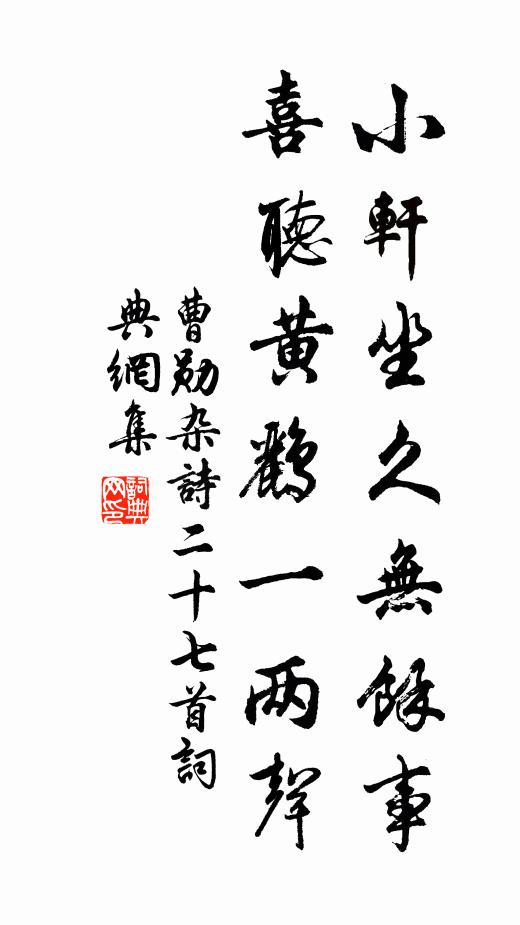 小軒坐久無餘事
喜聽黃鸝一两聲
曹勛杂詩二十七首詞
典網集
詞典网印